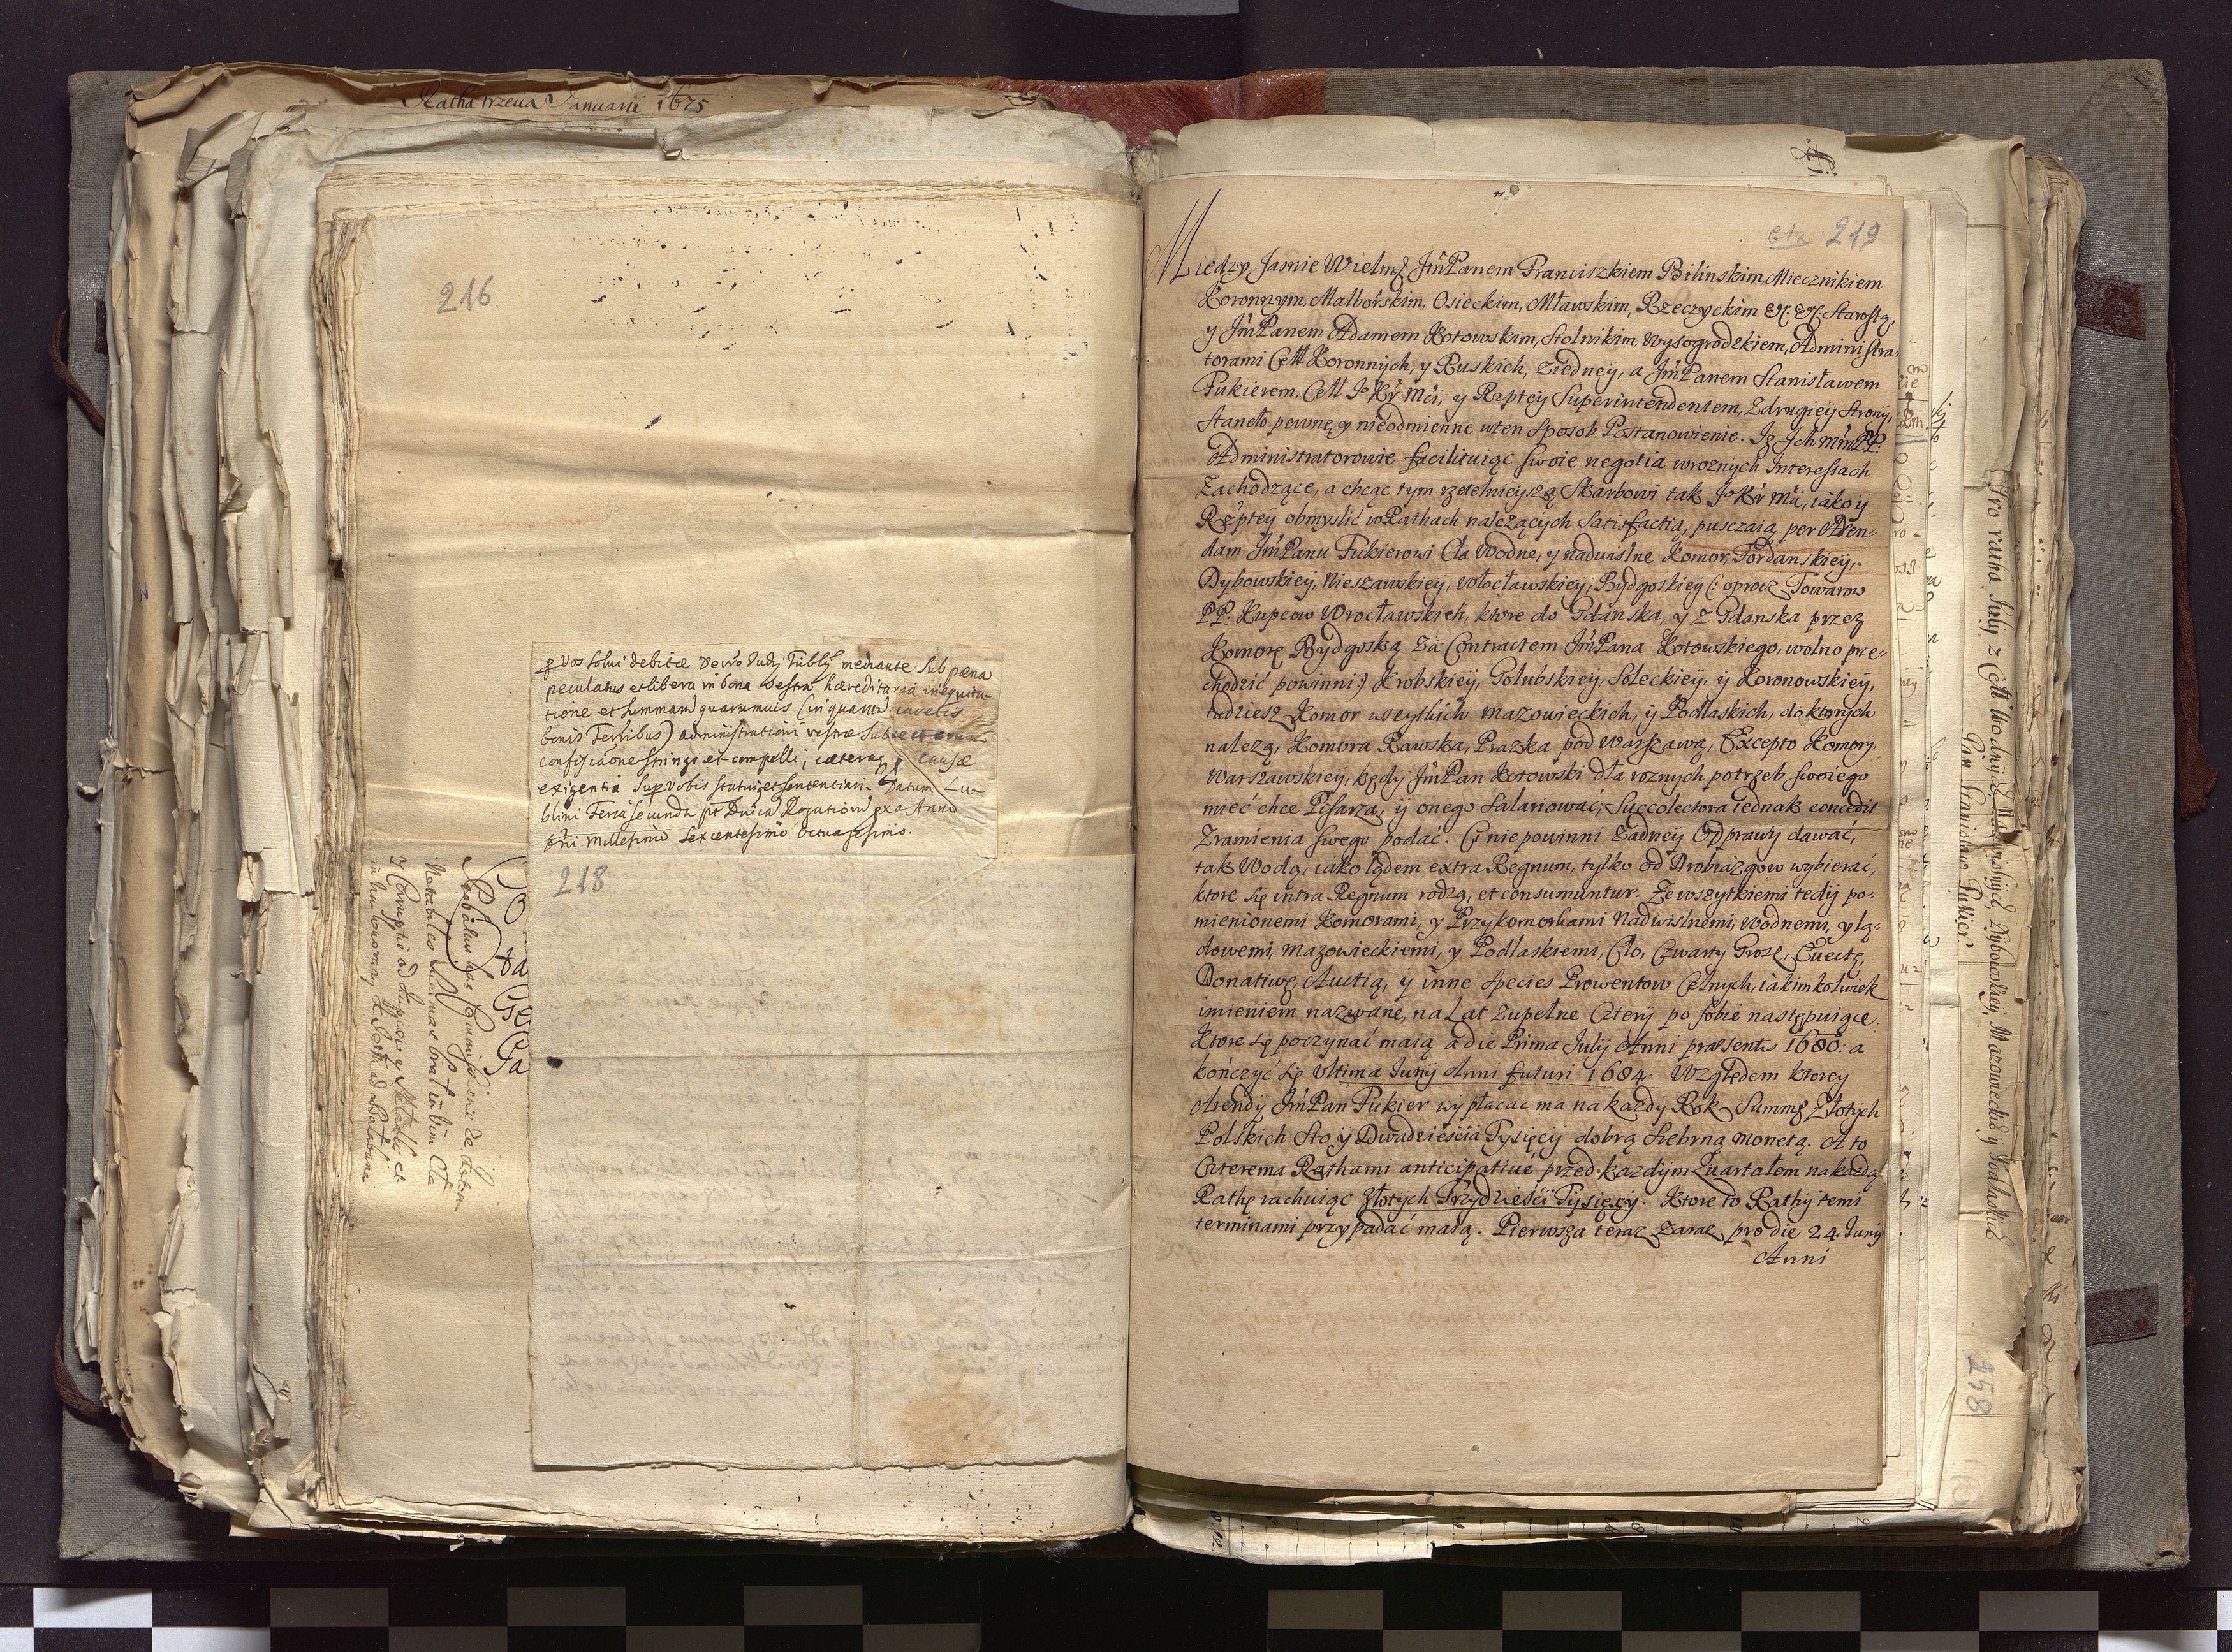 Ratha trzecia Januarii 1675
216
p vos solui debitæ Decreto Judy Tublÿ mediante sub pæna
peculatus et libera in bona vestra hæreditaria inequita-
tione et summarum quarumuis (in quantum cavetis
bonis Terribus) administrationi vestræ sub
confiscãone stringi et compelli; cæteraq causæ
exigentia sup vobis statui et sententiari. Datum Lu-
blini Feria secunda pt Dnicã Rogationũ pxa Anno
Dni Millesimo Sexcentesimo Octuagesimo.
218
219
Miedzy Jasnie Wielmo JmPanem Franciszkiem Bilinskim, Miecznikiem
Koronnym, Malborskim, Osieckim, Mławskim, Rzeczyckim etc. etc. Starostą,
y JmPanem Adamem Kotowskim, Stolnikim, Wysogrodzkiem, Administra-
torami Cell Koronnych, y Ruskich, ziedney, a JmPanem Stanisławem
Fukierem, Cell Jo Kr Mci, y Rzptey Superintendentem, Zdrugiey Strony,
Staneło pewne, y nieodmienne wten sposob Postanowienie. Iz Ich MmPP.
Administratorowie facilituiąc swoie negotia wroznych Interessach
Zachodzące, a chcąc tym rzetelnieyszą Skarbowi tak Jo Kr Mci, iako y
Rzptey obmyslić wRathach nalezących Satisfactią, pusczaią per Aren-
dam JmPanu Fukierowi Cła Wodne, y nadwislne Komor, Fordanskiey,
Dybowskiey, Nieszawskiey, Włocławskiey, Bydgoskiey (: oprocz Towarow
PP. Kupcow Wrocławskich, ktore do Gdanska, y z Gdanska przez
Komorę Bydgoską za Contractem JmPana Kotowskiego, wolno prze-
chodzić powinni :) Krobskiey, Golubskiey, Soleckiey, y Koronowskiey,
tudziesz Komor wszytkich Mazowieckich, y Podlaskich, do ktorych
nalezą, Komora Rawska, Prazka pod Warszawą, Excepto Komory
Warszawskiey, kędy JmPan Kotowski dla roznych potrzeb swoiego
mieć chce Pisarza, y onego salariować, Succolectora iednak concedit
Zramienia swego podać. Ci nie powinni zadney Odprawy dawać,
tak Wodą, iako lądem extra Regnum, tylko od Drobiazgow wybierać,
ktore się intra Regnum rodzą, et consumuntur. Zewszytkiemi tedy po-
mienionemi Komorami, y Przykomorkami Nadwislnemi, wodnemi, y lą-
dowemi, Mazowieckiemi, y Podlaskiemi, Cło, Czwarty Grosz, Euectę,
Donatiwę, Auctią, y inne species Prowentow Celnych, iakimkolwiek
imieniem nazwane, na Lat zupełne Cztery po sobie następuiące.
Ktore się poczynać maią a die Prima July Anni præsentis 1680: a
kończyć się Vltima Juny Anni futuri 1684. Względem ktorey
Arendy JmPan Fukier wypłacac ma na kazdy Rok Summę Złotych
Polskich Sto y Dwadziescia Tysięcy dobrą srebrną monetą. A to
Czterema Rathami anticipatiuè przed kazdym Quartałem na kazdą
Rathę rachuiąc złotych Trzydziesci Tysięcy. Ktore to Rathy temi
terminami przypadać maią. Pierwsza teraz zaraz pro die 24. Juny
Anni
Pro ratha July z Cell Wodnych Nadwislnych, Dybowskiey, Mazowieckich y Podlaskich
Pan Stanisław Fukier
258